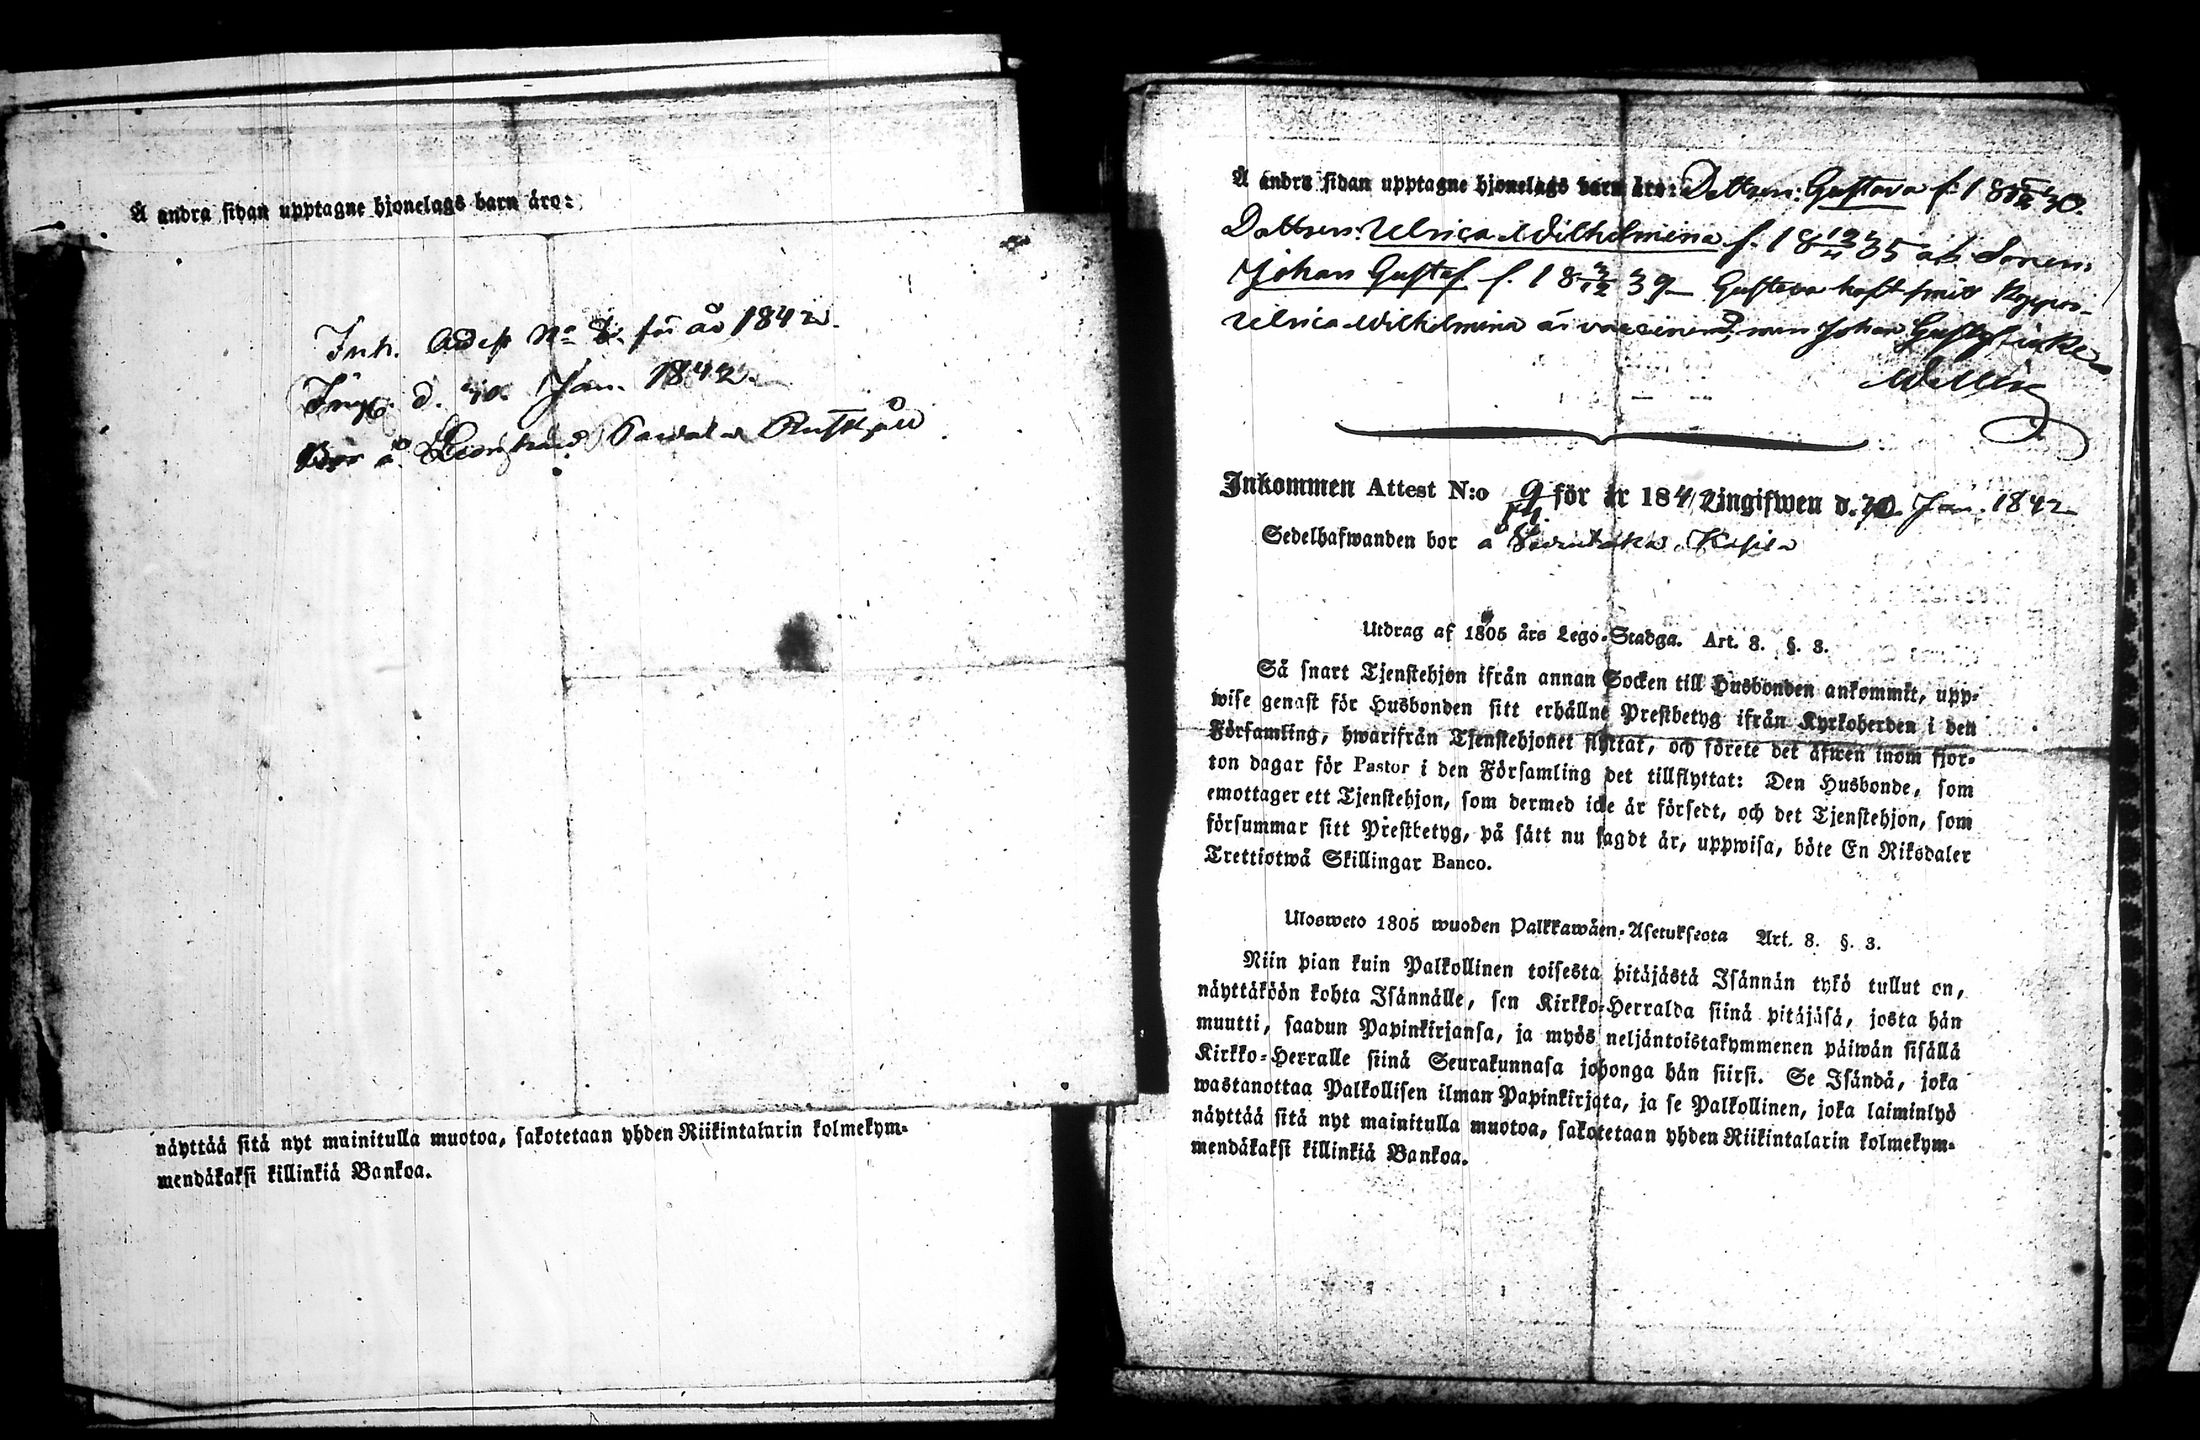 Å andra sidan upptagne hjonelags barn äro:
Ink. No för år 1842.
d. 30 Jan. 1842.
Bor å
näyttää sitä nyt mainitulla muotoa, sakotetaan yhden Riikintalarin kolmekym-
mendäkaksi killinkiä Bankoa.
Å andra sidan upptagne hjonelags barn äro: Dottren: Gustava f. 18 30.
Dottren: Ulrica Wilhelmina f. 18 35 Sonen:
Johan Gustaf f. 18 2/12 39 Gustava haft Koppor
Ulrica Wilhelmina är vaccinerad, men Johan Gustaf icke
Inkommen Attest N:o 9 för år 1842 ingifwen d. 30 Jan. 1842
Sedelhafwanden bor å
Utdrag af 1805 års Lego-Stadga. Art. 8. §. 3.
Så snart Tjenstehjon ifrån annan Socken till Husbonden ankommit, upp-
wise genast för Husbonden sitt erhållne Prestbetyg ifrån Kyrkoherden i den
Församling, hwarifrån Tjenstehjonet flyttat, och förete det äfwen inom fjor-
ton dagar för Pastor i den Församling det tillflyttat: Den Husbonde, som
emottager ett Tjenstehjon, som dermed icke är försedt, och det Tjenstehjon, som
försummar sitt Prestbetyg, på sätt nu sagdt är, uppwisa, böte En Riksdaler
Trettiotwå Skillingar Banco.
Ulosweto 1805 wuoden Palkkawäen-Asetuksesta Art. 8. §. 3.
Niin pian kuin Palkollinen toisesta pitäjästä Isännän tykö tullut on,
näyttäköön kohta Isännälle, sen Kirkko-Herralda siinä pitäjäsä, josta hän
muutti, saadun Papinkirjansa, ja myös neljäntoistakymmenen päiwän sisällä
Kirkko-Herralle siinä Seurakunnasa johonga hän siirsi. Se Isändä, joka
wastanottaa Palkollisen ilman Papinkirjata, ja se Palkollinen, joka laiminlyö
näyttää sitä nyt mainitulla muotoa, sakotetaan yhden Riikintalarin kolmekym-
mendäkaksi killinkiä Bankoa.